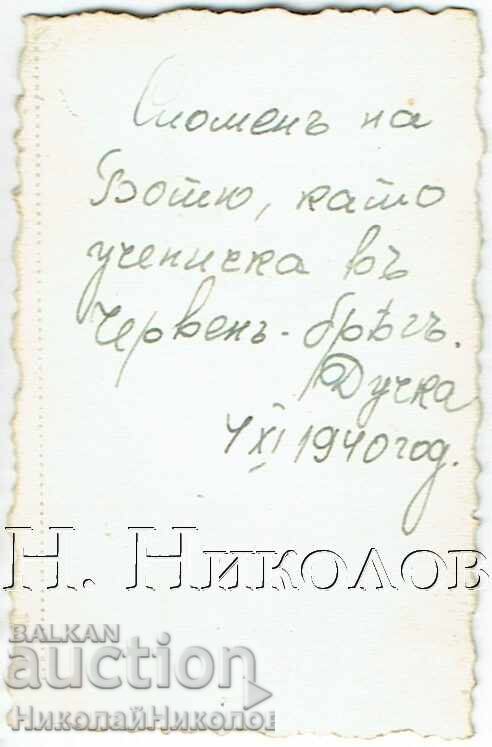 Споменъ на
Ботю, като
ученичка въ
Червенъ-брѣгъ.
Дучка
4 XI 1940 год.
Н. Николов
BALKAN
auction
НиколайНиколов